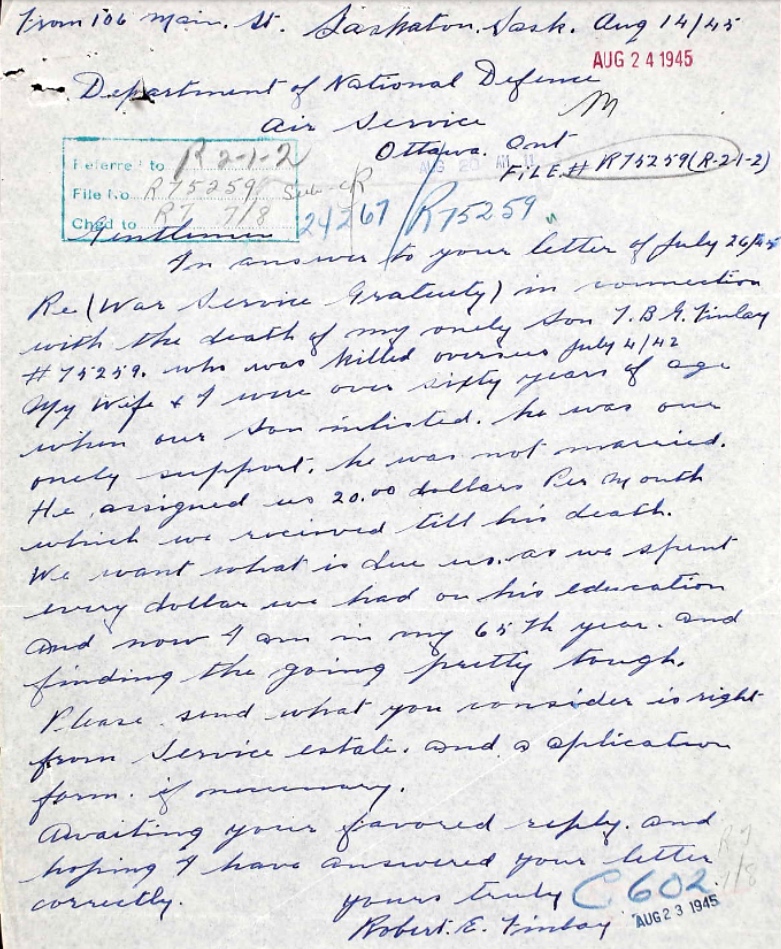 From 106 Main. St. Saskatoon. Sask. Aug 14/45
AUG 24 1945
Department of National Defence
Air Service
Ottawa. Ont
FILE # R75259 (R-2-1-2)
Referred to R 2-1-2
File No R75259
Chgd to R7 7/8
24267 / R75259
Gentlemen
In answer to your letter of July 26/45
Re (War Service Gratuety) in connection
with the death of my onely son T.B.G. Finlay
# 75259. who was killed overseas July 4/42
My Wife & I were over sixty years of age
when our son inlisted. he was our
onely support. he was not married.
He assigned us 20.00 dollars Per Month
which we received till his death.
We want what is due us. as we spent
every dollar we had on his education
and now I am in my 65th year. and
finding the going pretty tough.
Please send what you consider is right
from Service estate. and a aplication
form. if necessary.
Awaiting your favored reply. and
hoping I have answered your letter
correctly.
yours truly
Robert. E. Finlay
C602.
AUG 23 1945
R7
7/8